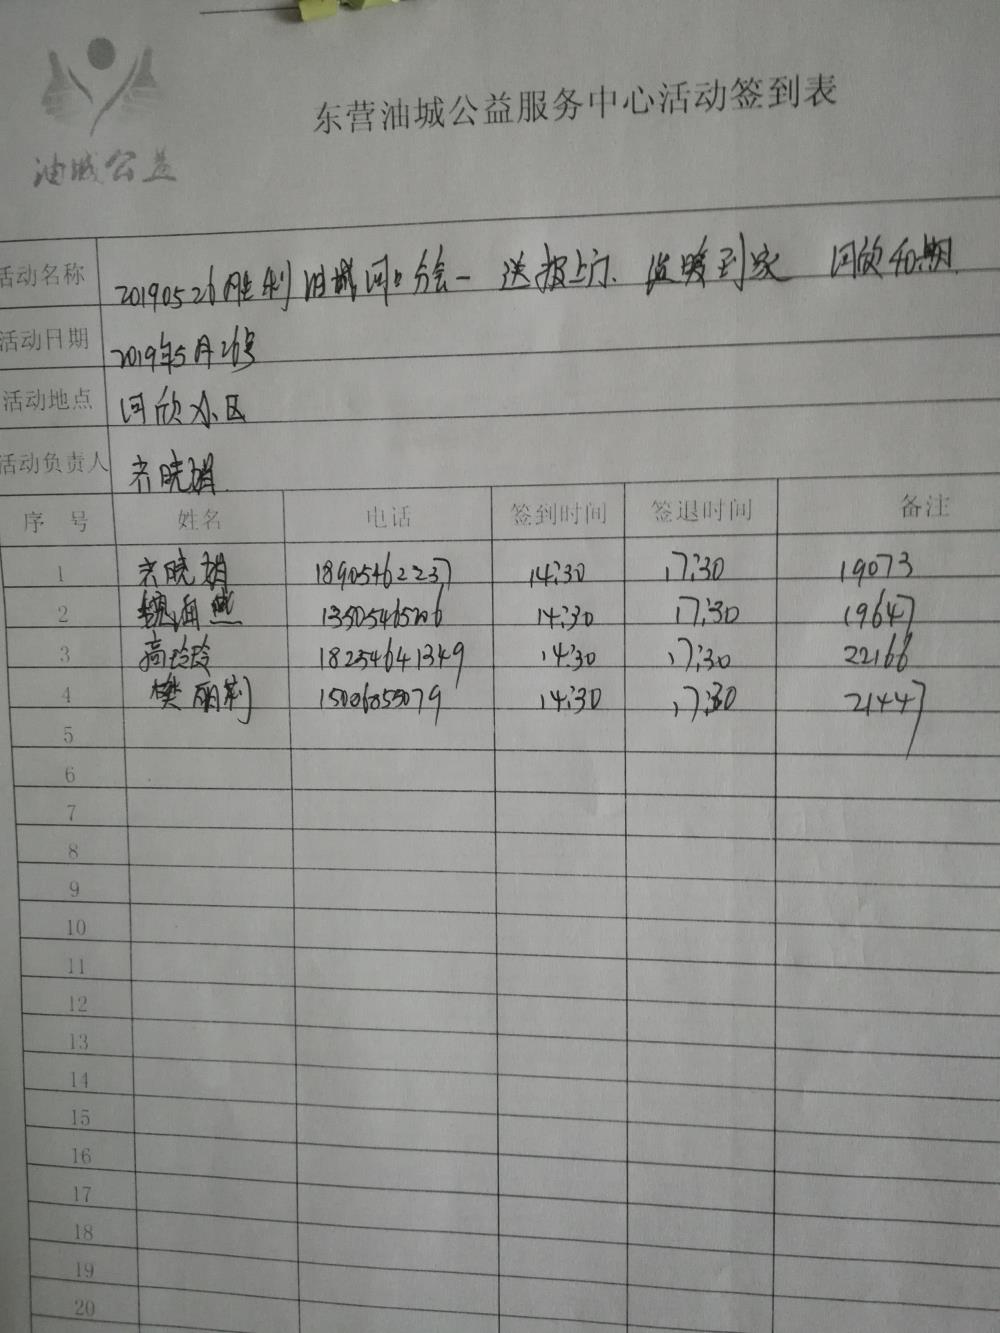 油城公益
东营油城公益服务中心活动签到表
活动名称 20190526胜利油城河口分会一送报上门、送暖到家 河欣40期
活动日期 2019年5月26号
活动地点 河欣小区
活动负责人 齐晓娟
序号 姓名 电话 签到时间 签退时间 备注
1 齐晓娟 18905462237 14:30 17:30 19073
2 魏海燕 14:30 17:30 19647
3 高玲玲 18254641349 14:30 17:30 22166
4 樊丽莉 14:30 17:30 21447
5
6
7
8
9
10
11
12
13
14
15
16
17
18
19
20